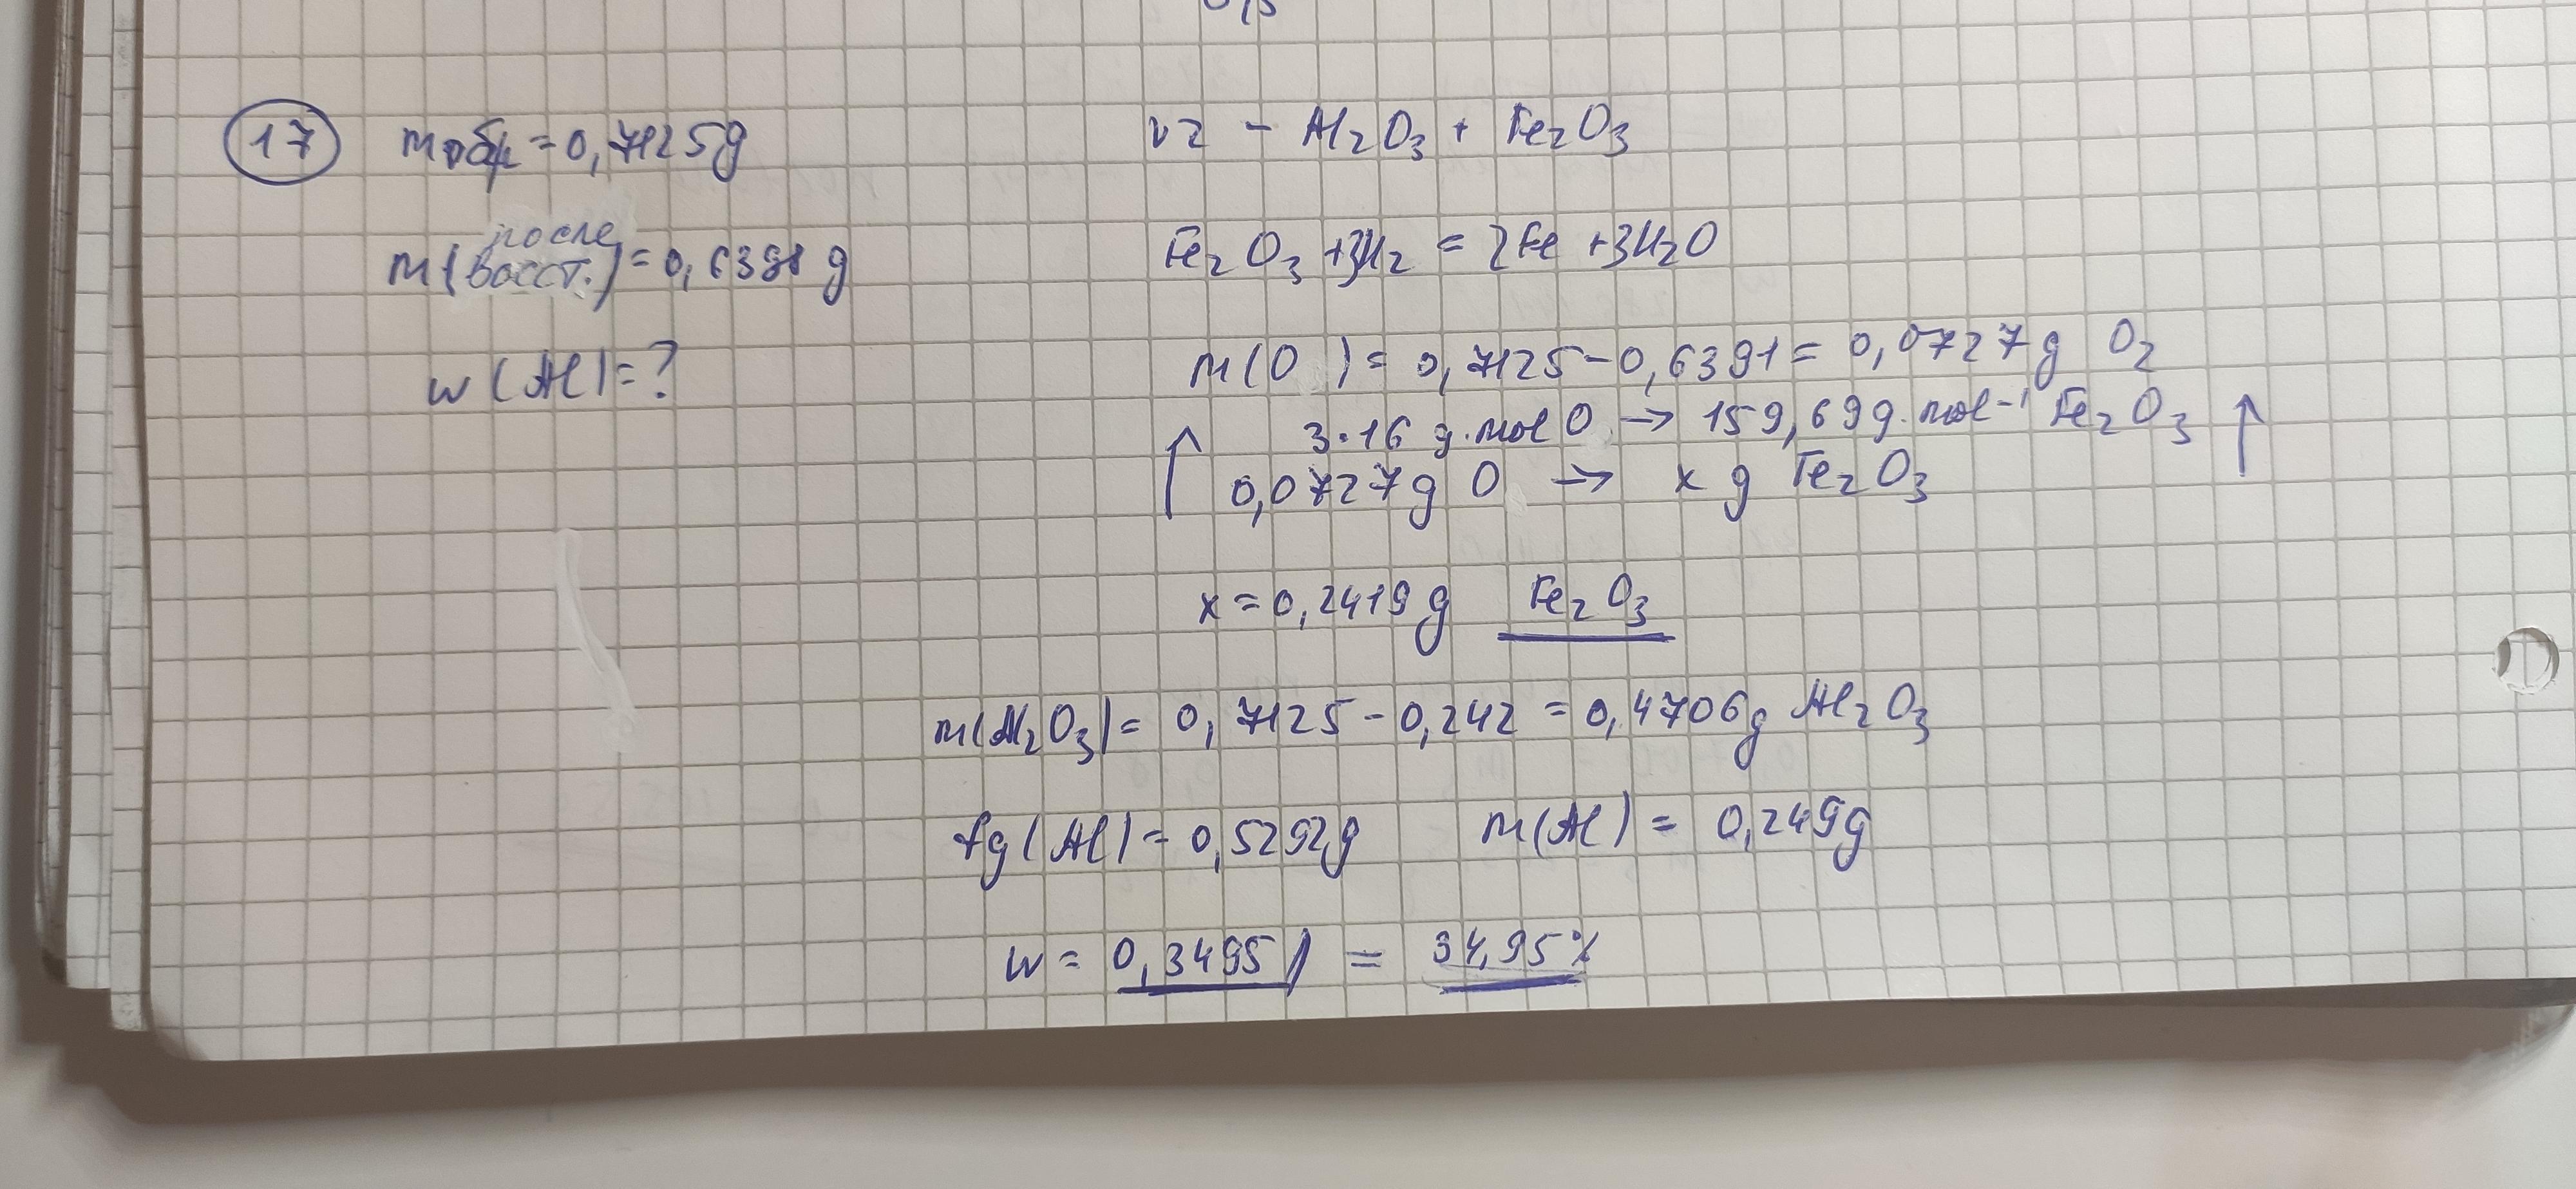 17 mобр = 0,7125g
m(после восст.) = 0,6398 g
w (Al) = ?
vz - Al2O3 + Fe2O3
Fe2O3 + 3H2 = 2Fe + 3H2O
m(O ) = 0,7125 - 0,6391 = 0,0727g O2
↑ 3·16 g·mol O → 159,69 g·mol-1 Fe2O3 ↑
0,0727g O → x g Fe2O3
x = 0,2419 g Fe2O3
m(Al2O3) = 0,7125 - 0,242 = 0,4706g Al2O3
fg(Al) = 0,5292g m(Al) = 0,249g
w = 0,3495 = 34,95%